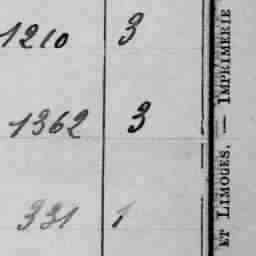 1210 3
1362 3
331 1
ET LIMOGES. — IMPRIMERIE